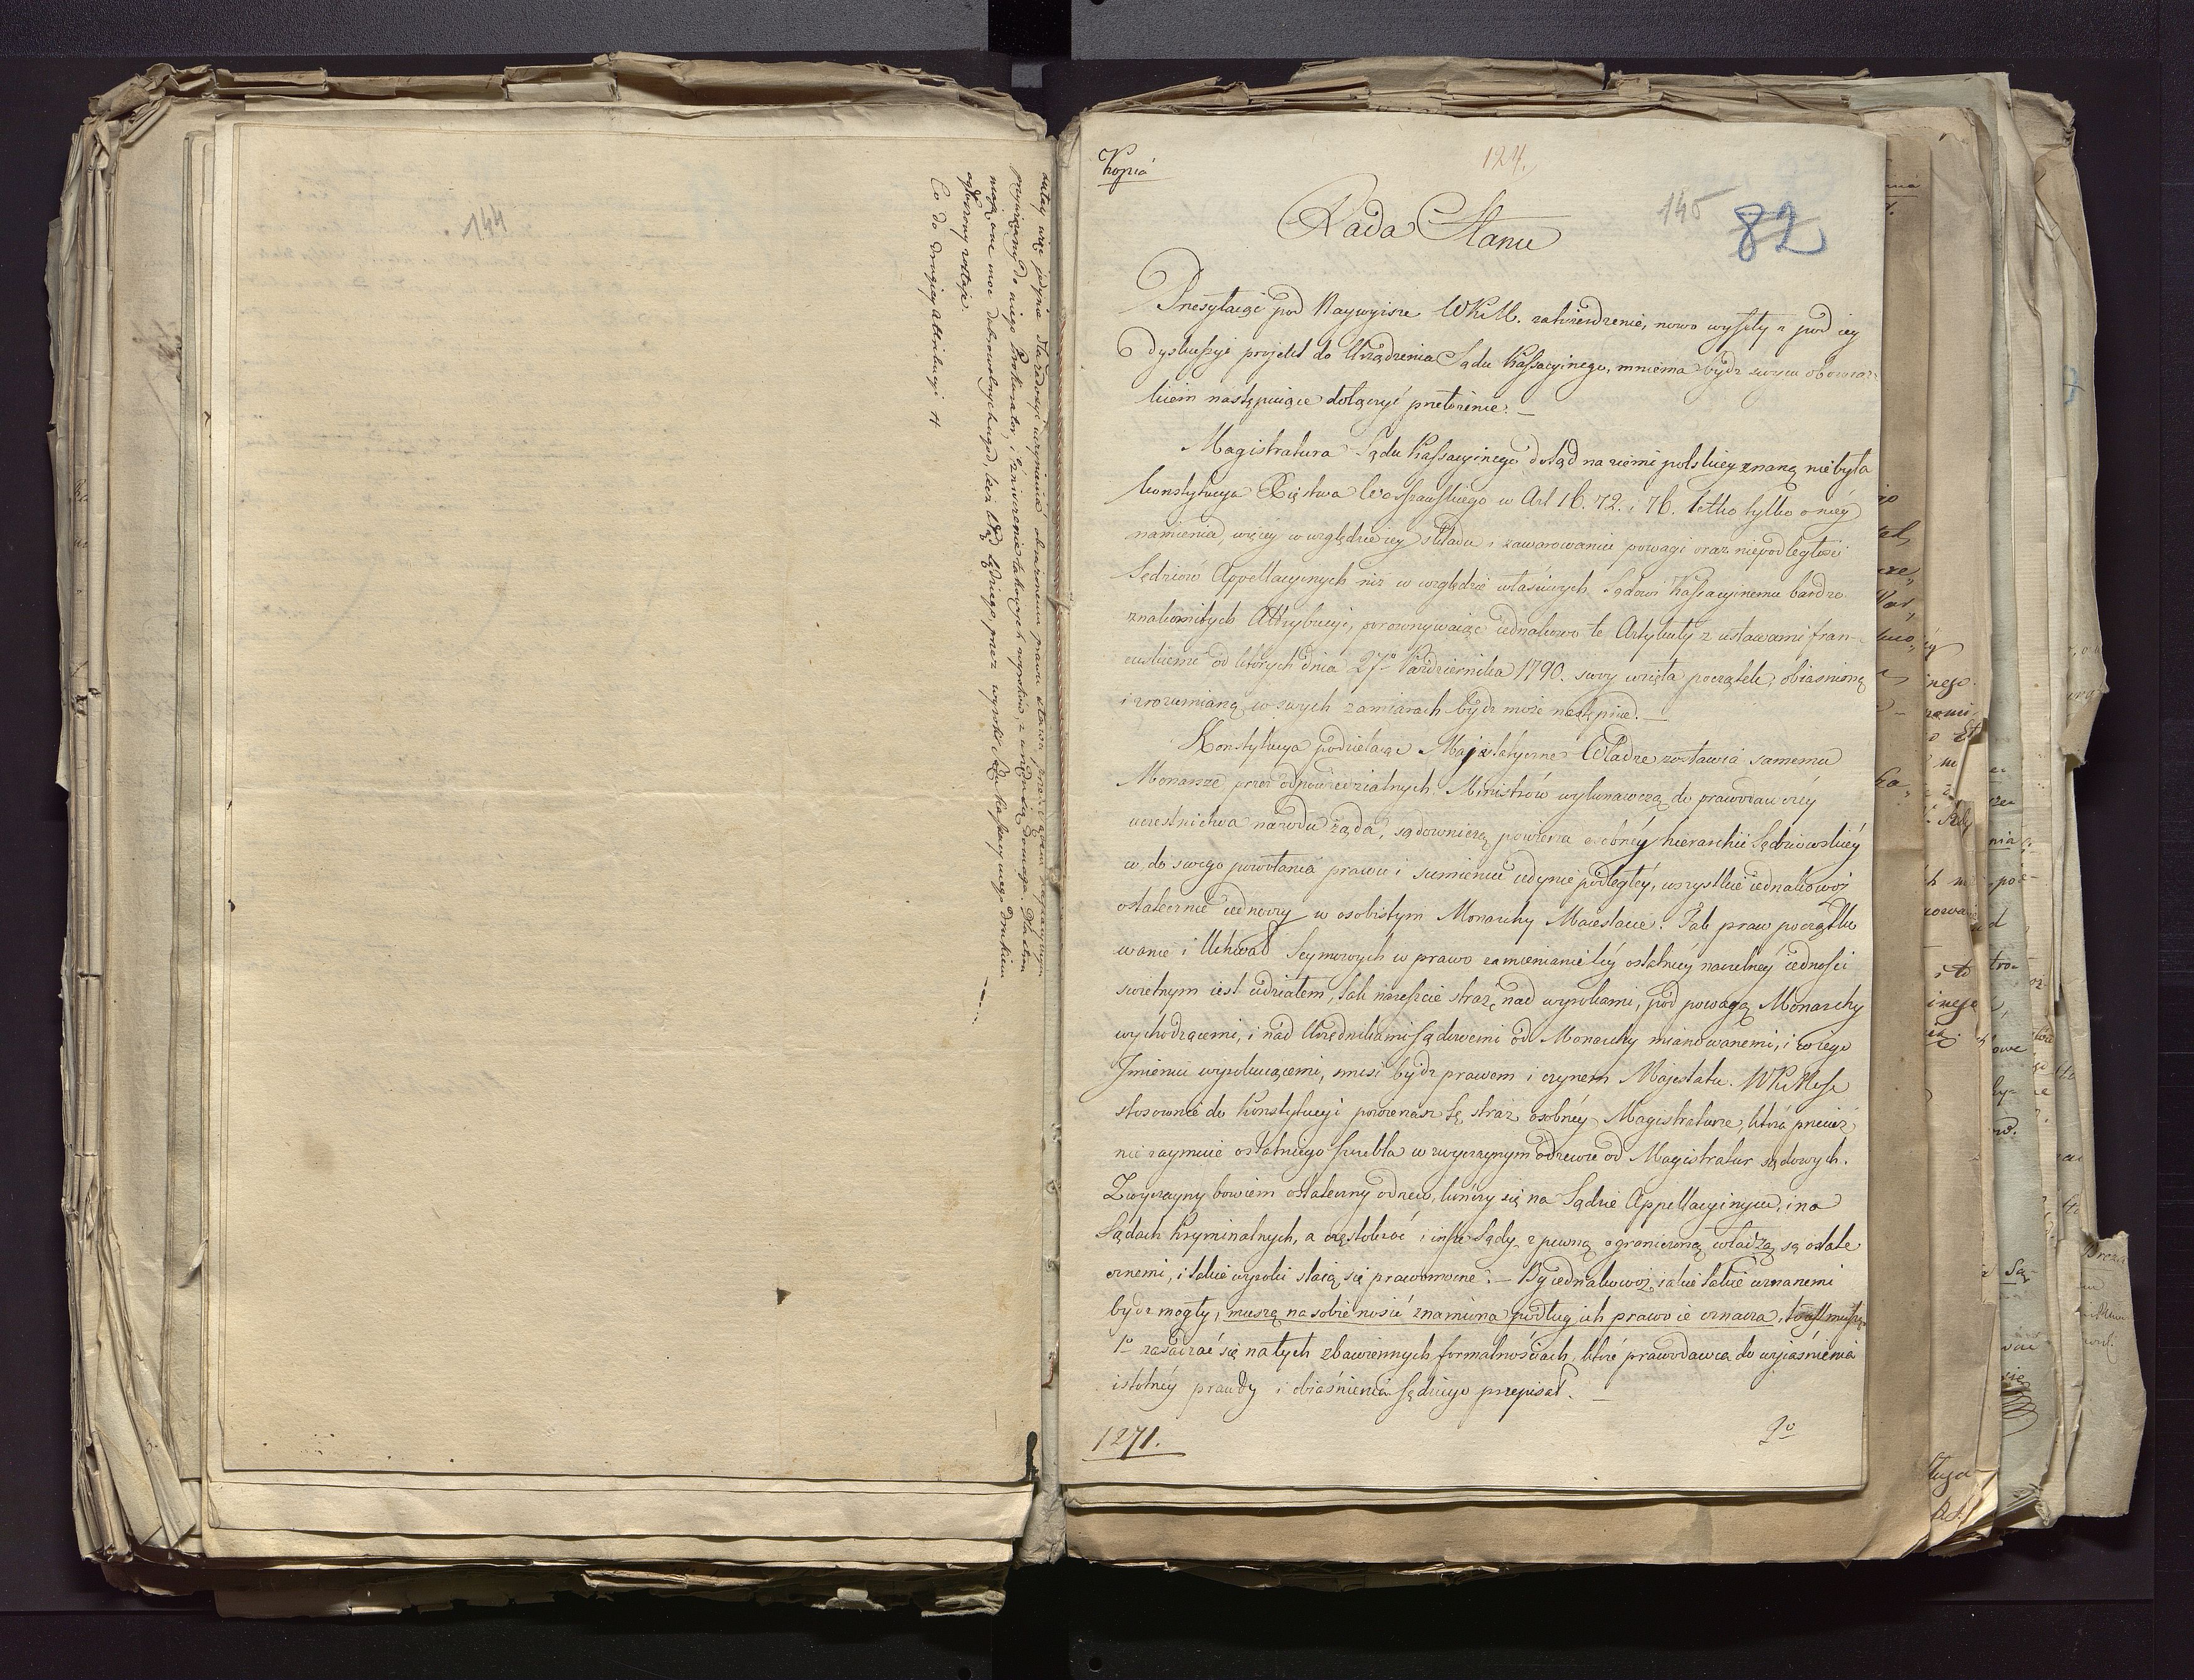 144
tutay więc jedynie dla zadosyć uczynienia obrażonemu prawu stawa przed Sądem Kassacyinym
przywiązany do niego Prokurator, i zniszczenie takowych wyroków, z urzędu się domaga. Dla stron
maią one moc dobrowolnych ugod, lecz błąd Sędziego, przez wyrok Sądu Kassacyinego drukiem
ogłoszony zostaje.
Co do drugiey attribucyi
Kopia
124.
145
82
Rada Stanu
Przesyłaiąc pod Naywyższe WKM. zatwierdzenie, nowo wyszły z pod iey
dyskussyi projekt do Urządzenia Sądu Kassacyinego, mniema bydź swym obowiąz-
kiem następuiące dołączyć przełożenie. —
Magistratura Sądu Kassacyinego dotąd na ziemi polskiey znaną nie była
Konstytucya Xięstwa Warszawskiego w Art 16. 72. i 76. lekko tylko o niey
namienia, więcey w względzie iey składu i zawarowania powagi oraz niepodległości
Sędziów Appellacyinych niż w względzie właściwych Sądowi Kassacyinemu bardzo
znakomitych Attrybucyi, porownywaiąc iednakowo te Artykuły z ustawami fran-
cuskiemi od których dnia 27o Października 1790. swóy wzięła początek, obiaśnioną
i zrozumianą w swych zamiarach bydź może następnie. —
Konstytucya podzielaiąc Majestatyczne Władze zostawia samemu
Monarsze przez odpowiedzialnych Ministrów wykonawczą, do prawodawczéy
uczestnictwa narodu żąda, sądowniczą powierza osobnéy hierarchii Sędziowskiéy
w do swego powołania prawu i sumieniu iedynie podległéy, wszystkie iednakowoż
ostatecznie iednoczy w osobistym Monarchy Maiestacie. Jak praw początko
wanie i Uchwał Seymowych w prawo zamienianie téy ostatniey naczelney iedności
swietnym iest udziałem, tak nareszcie straż nad wyrokami, pod powagą Monarchy
wychodzącemi, i nad Urzędnikami sądowemi od Monarchy mianowanemi, i w iego
Imieniu wyrokuiącemi, musi bydź prawem i czynem Majestatu. WKMość
stosownie do Konstytucyi powierzasz tę straż osobnéy Magistraturze, która przecież
nie zaymuie ostatniego szczebla w zwyczaynym odzewie od Magistratur sądowych.
Zwyczayny bowiem ostateczny odzew, kończy się na Sądzie Appellacyinym, i na
Sądach Kryminalnych, a częstokroć i insze Sądy z pewną ograniczoną władzą są ostate
cznemi, i takie wyroki staią się prawomocne. — By iednakowoż iako takie uznanemi
bydź mogły, muszą na sobie nosić znamiona podług ich prawo ie oznacza, to iest muszą
1o zasadzać się na tych zbawiennych formalnościach, które prawodawca do wyiaśnienia
istotnéy prawdy i obiaśnienia Sędziego przepisał. —
1271.
2o